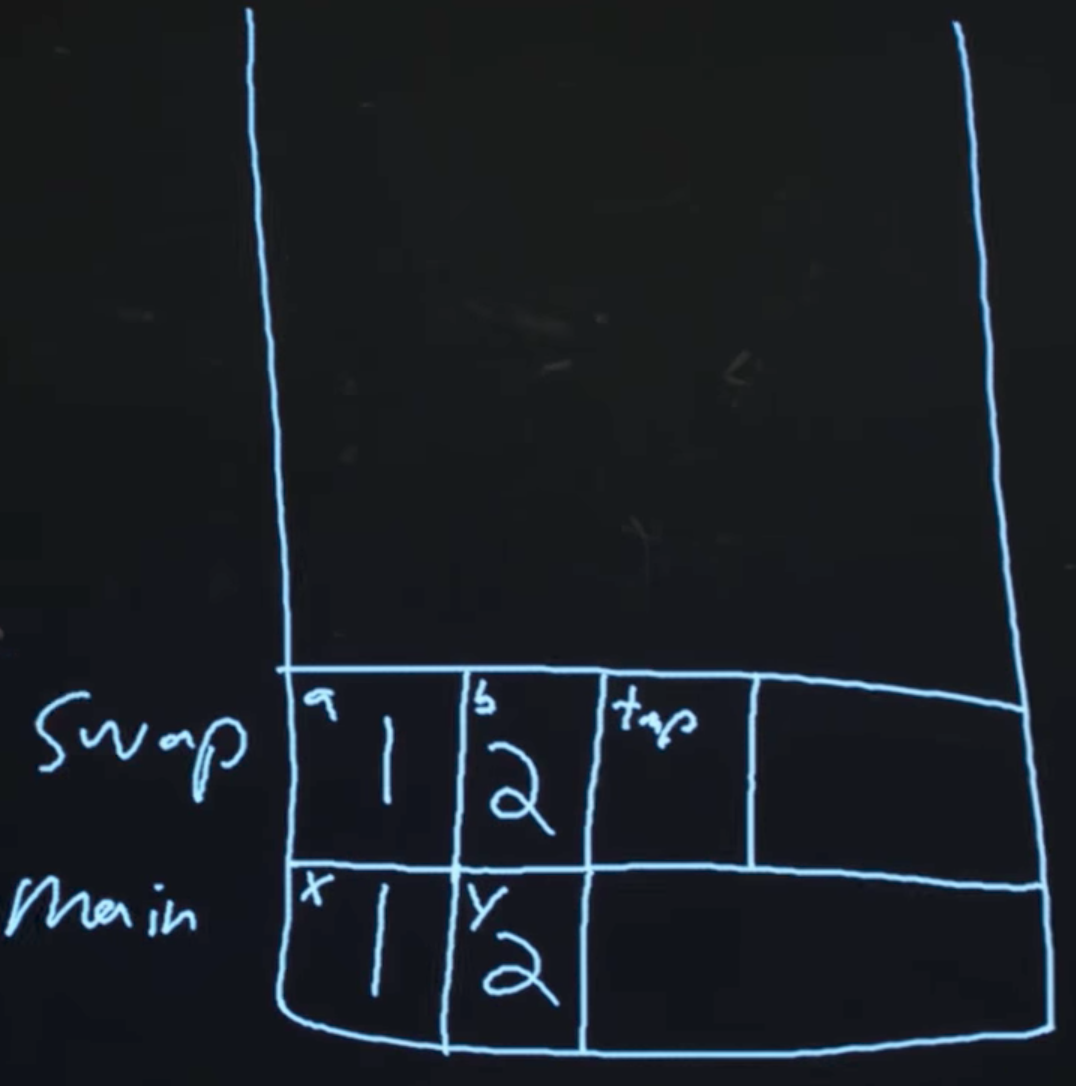 Swap a 1 b 2 tmp
Main x 1 y 2